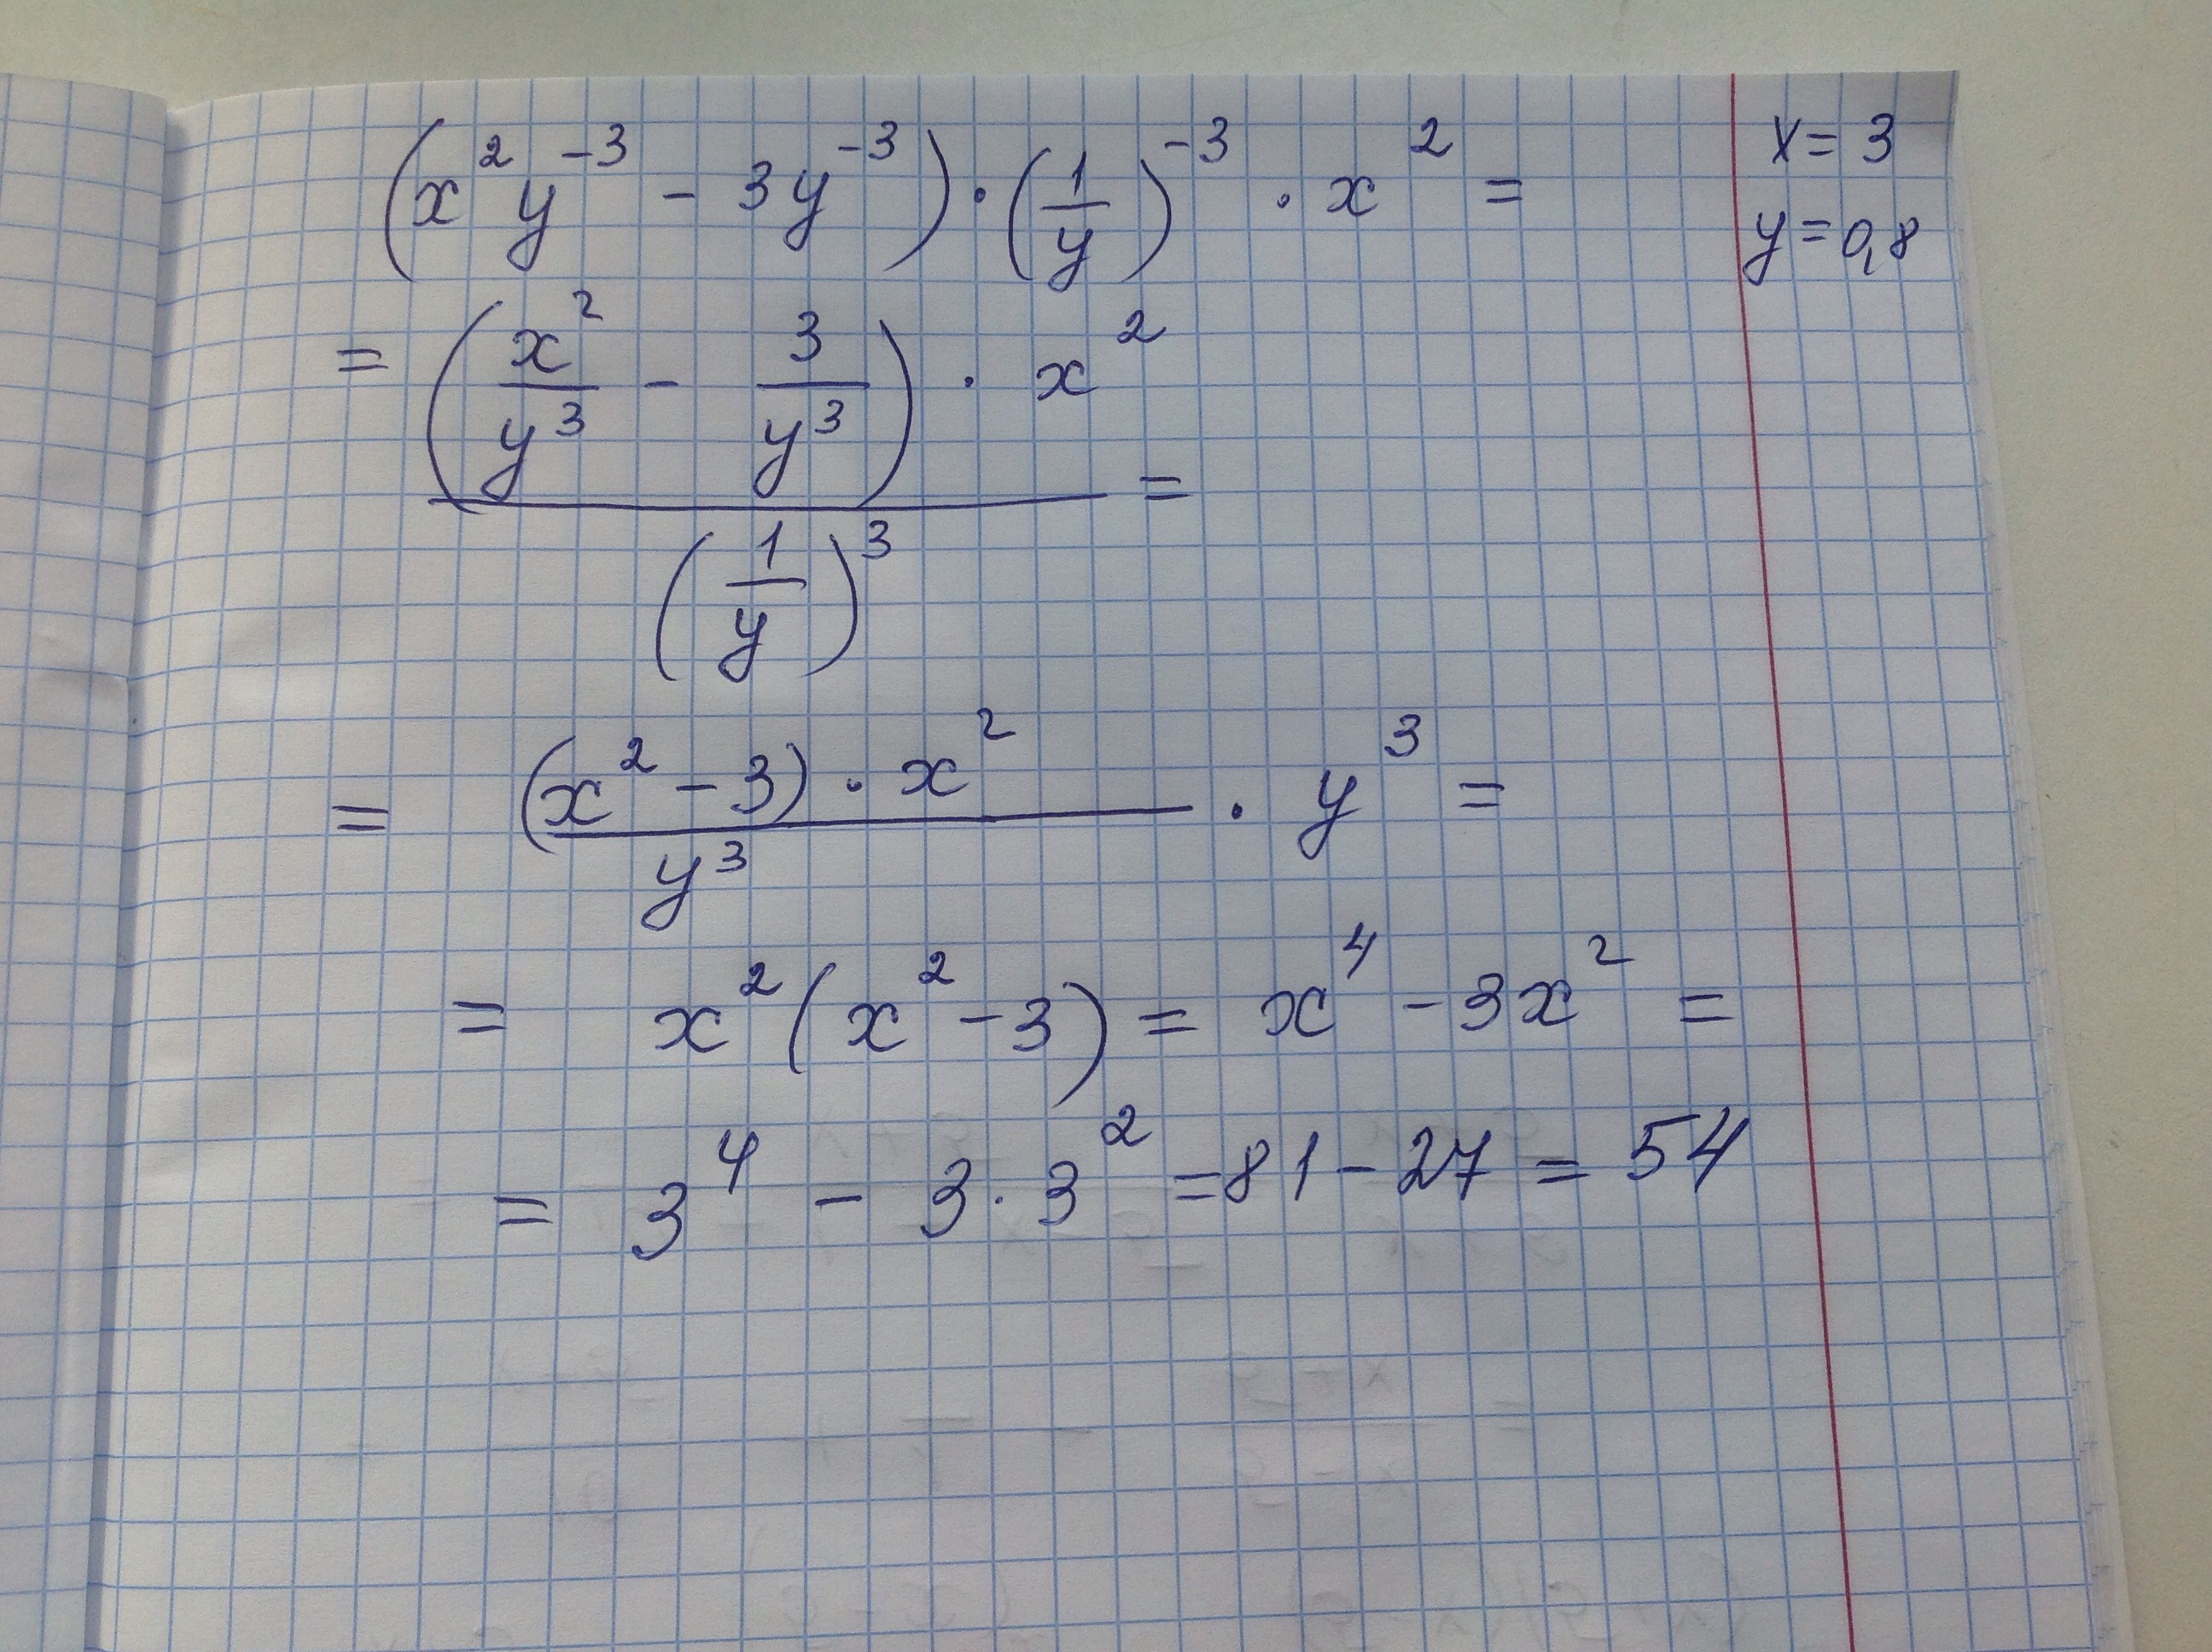 (x²y⁻³ - 3y⁻³) · (1/y)⁻³ · x² =
x = 3
y = 0,8
= ((x²/y³ - 3/y³) · x²)/(1/y)³ =
= ((x² - 3) · x²)/y³ · y³ =
= x²(x² - 3) = x⁴ - 3x² =
= 3⁴ - 3·3² = 81 - 27 = 54